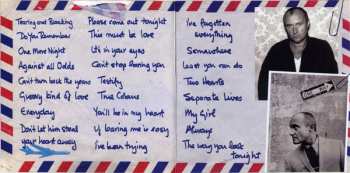 Tearing and Breaking
Do You Remember
One More Night
Against all Odds
Can't turn back the years
Groovy kind of Love
Everyday
Don't let him steal
your heart away
Please come out tonight
This must be love
It's in your eyes
Can't stop loving you
Testify
True Colours
You'll be in my heart
If leaving me is easy
I've been trying
I've forgotten
everything
Somewhere
Least you can do
Two Hearts
Separate Lives
My Girl
Always
The way you look
tonight